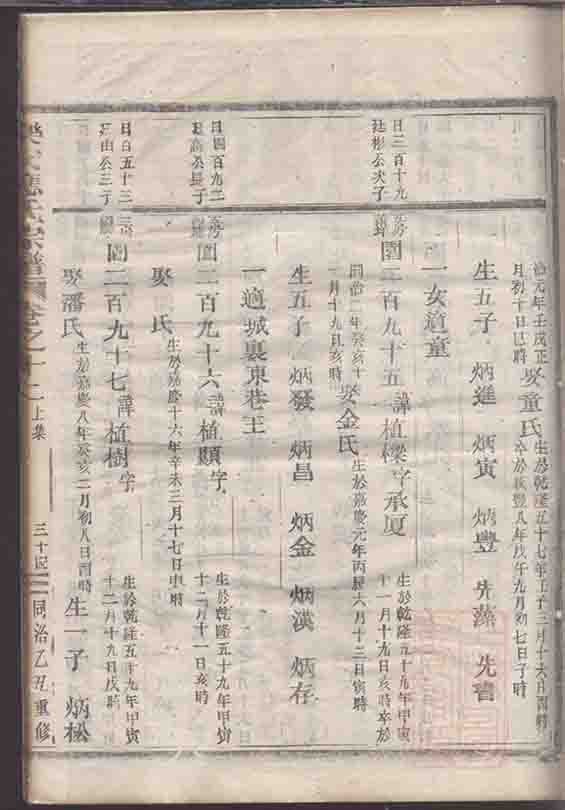 治元年壬戌正
月初十日巳時
娶童氏
生於乾隆五十七年壬子二月十六日酉時
卒於咸豐八年戊午九月初七日子時
生五子 炳進 炳寅 炳豐 先藻 先
一女適童
日三百十九
廷彬公次子
園二百九十五諱植樑字承厦
生於乾隆五十九年甲寅
十一月十九日亥時卒於
同治二年癸亥十
一月十九日亥時
娶金氏
生於嘉慶元年丙辰六月十三日寅時
生五子 炳發 炳昌 炳金 炳漢 炳存
一適城裏東巷王
園二百九十六諱植顯字
生於乾隆五十九年甲寅
十二月十一日亥時
娶 氏
生於嘉慶十六年辛未三月十七日申時
園二百九十七諱植樹字
生於乾隆五十九年甲寅
十二月十九日戌時
娶潘氏
生於嘉慶八年癸亥二月初八日酉時
生一子 炳松
氏宗譜 卷之十二上集 三十 同治乙丑重修